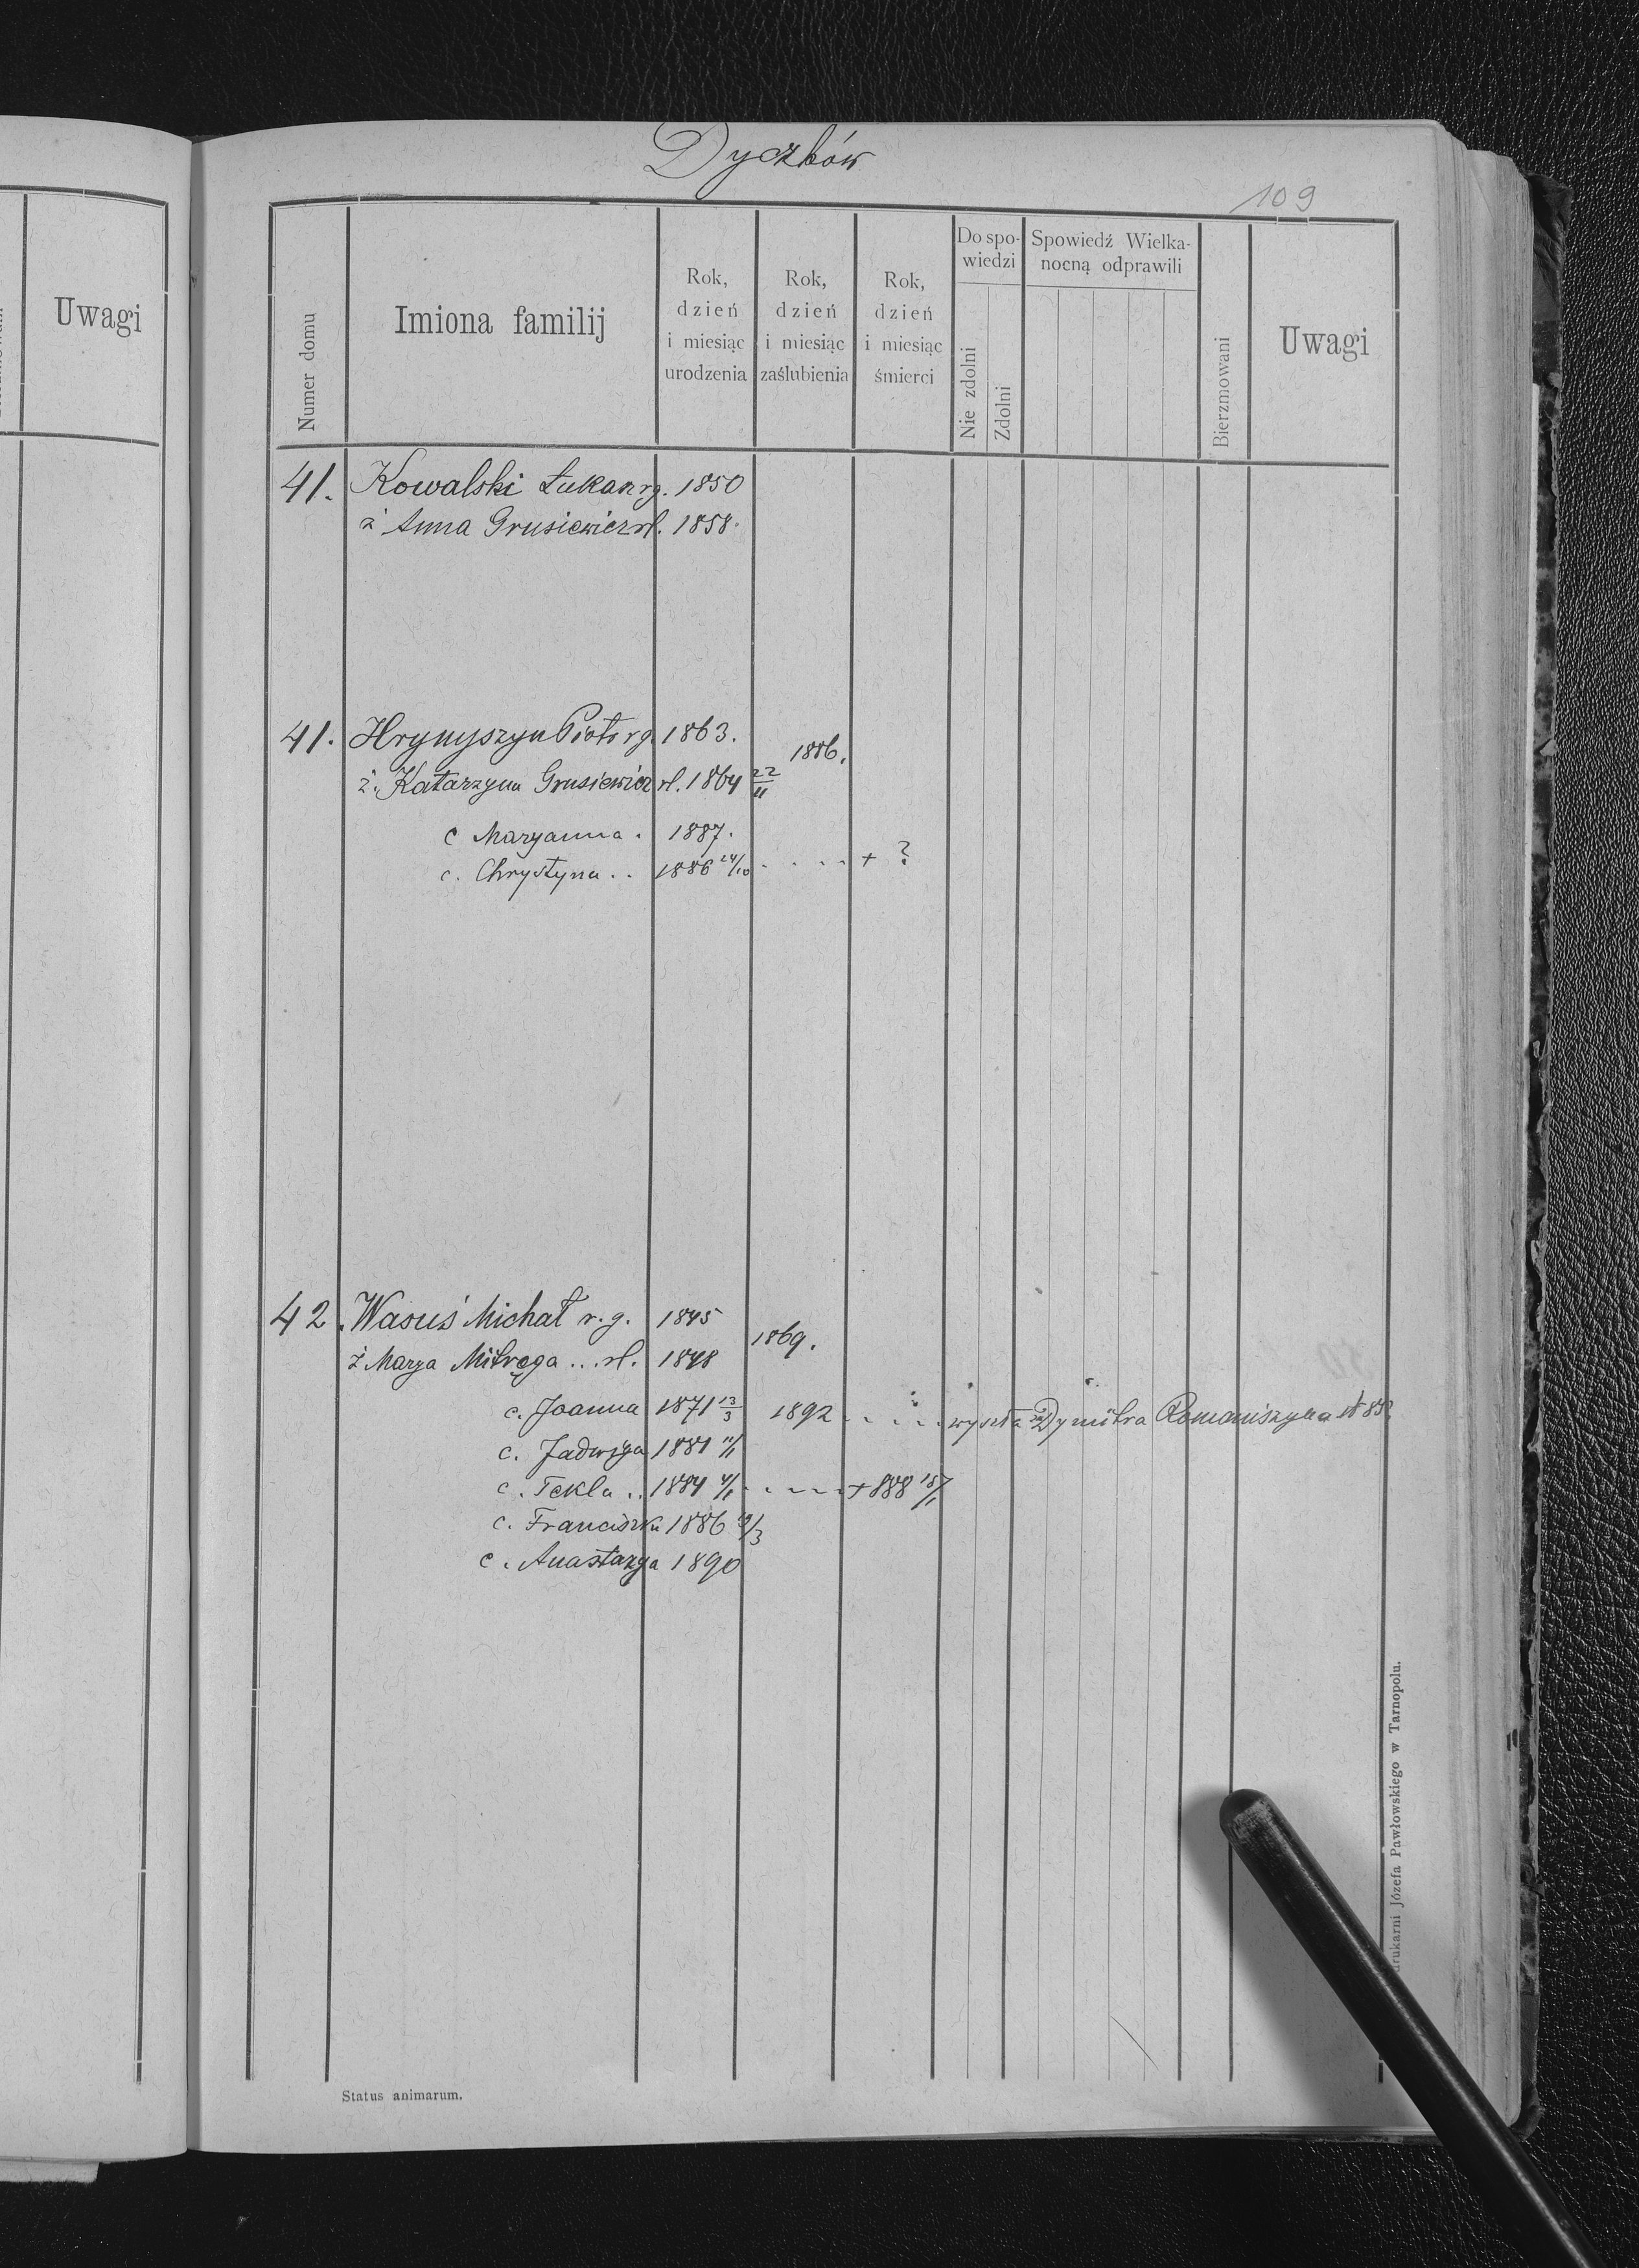 Dyczków
109
Uwagi
Numer domu
Imiona familij
Rok, dzień i miesiąc urodzenia
Rok, dzień i miesiąc zaślubienia
Rok, dzień i miesiąc śmierci
Do spo-wiedzi
Nie zdolni
Zdolni
Spowiedź Wielka-nocną odprawili
Bierzmowani
Uwagi
41. Kowalski Łukasz rg. 1850
ż Anna Grusiewicz rł. 1858.
41. Hrynyszyn Piotr rg. 1863. 1886.
ż. Katarzyna Grusiewicz rł. 1864 22/11
c Maryanna . 1887.
c. Chrystyna .. 1886 24/10 . . . . + ?
42. Wasuś Michał r. g. 1845 1869.
ż Marya Mitręga ... rł. 1848
c. Joanna 1871 13/3 1892 . . . . wyszła za Dymitra Romaniszyna
c. Jadwiga 1881 11/1
c. Tekla .. 1884 4/1 . . . . + 888 18/1
c. Franciszka 1886
c. Anastazya 1890
Status animarum.
drukarni Józefa Pawłowskiego w Tarnopolu.